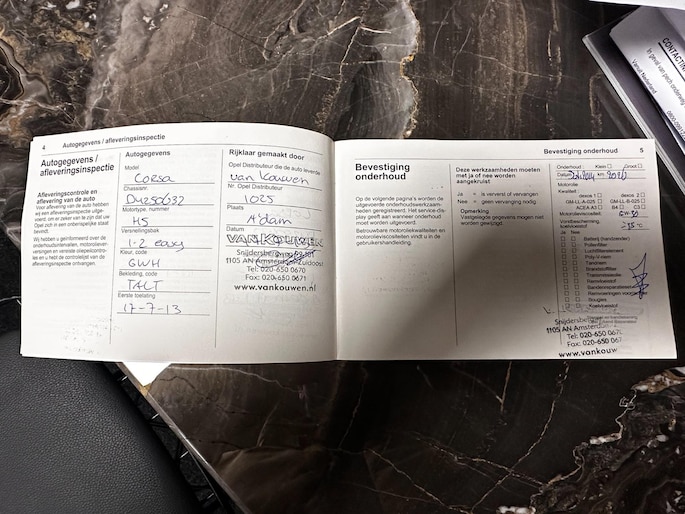 4 Autogegevens / afleveringsinspectie
Autogegevens /
afleveringsinspectie
Aflevering­controle en
aflevering van de auto
Voor aflevering van de auto hebben
wij een afleveringsinspectie uitge-
voerd, om er zeker van te zijn dat uw
Opel zich in een onberispelijke staat
bevindt.
Wij hebben u geïnformeerd over de
onderhoudsintervallen, motorolie-
verversingen en vereiste oliepeilcontro-
les en u hebt de controlelijst van de
afleveringsinspectie ontvangen.
Autogegevens
Model
Corsa
Chassisnr.
Motortype, nummer
Versnellingsbak
1.2 easy
Kleur, code
GWH
Bekleding, code
TALT
Eerste toelating
17-7-13
Rijklaar gemaakt door
Opel Distributeur die de auto levert
van Kouwen
Nr. Opel Distributeur
1025
Plaats
A'dam
Datum
VAN KOUWEN
1105 AN Amsterdam Zuidoost
Tel: 020-650 0670
Fax: 020-650 0671
www.vankouwen.nl
Bevestiging onderhoud 5
Bevestiging
onderhoud
Op de volgende pagina's worden de
uitgevoerde onderhoudswerkzaam-
heden geregistreerd. Het service-dis-
play geeft aan wanneer onderhoud
moet plaatsvinden.
Betrouwbare motoroliekwaliteiten en
motorolieviscositeiten vindt u in de
gebruikershandleiding.
Deze werkzaamheden moeten
met ja of nee worden
aangekruist
Ja = is ververst of vervangen
Nee = geen vervanging nodig
Opmerking
Vastgelegde gegevens mogen niet
worden gewijzigd.
Onderhoud: Klein Groot
Datum
Motorolie
Kwaliteit
dexos 1 dexos 2
GM-LL-A-025 GM-LL-B-025
ACEA A3 B4 C3
Motorolieviscositeit
Ja Nee
Pollenfilter
Luchtfilterelement
Poly-V riem
Tandriem
Brandstoffilter
Transmissieolie
Remvloeistof
Bandenreparatieset
Bougies
Koelvloeistof
1105 AN Amsterdam
Tel: 020-650 067
Fax: 020-650 067
www.vankouw